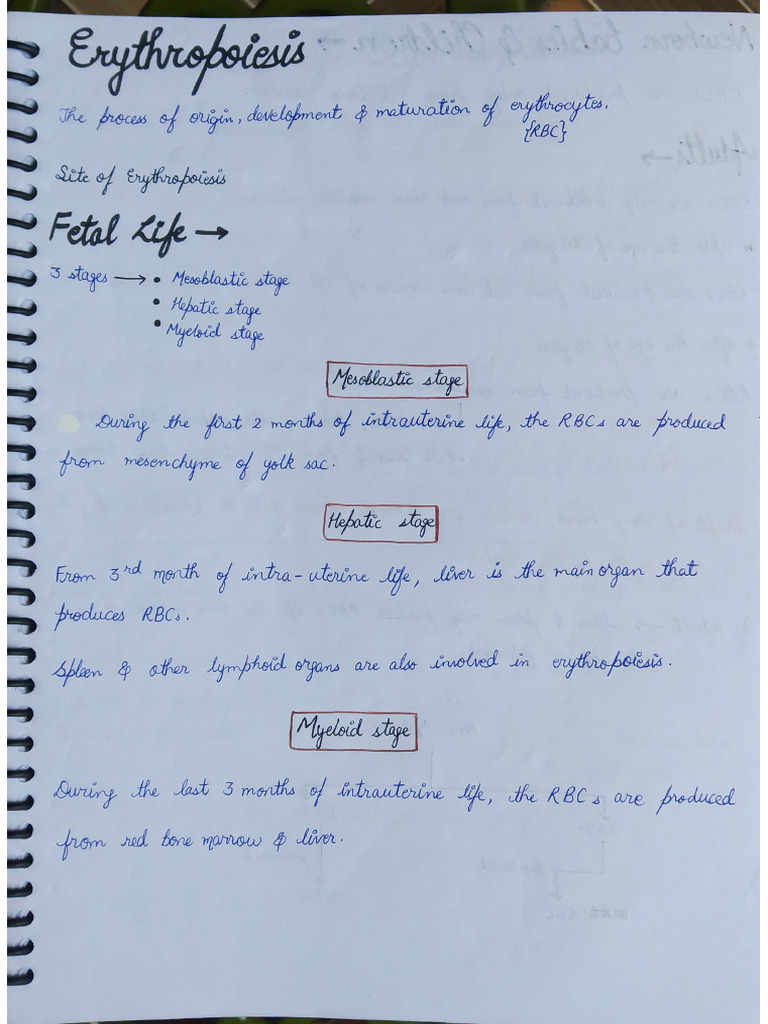 Erythropoiesis
The process of origin, development & maturation of erythrocytes.
{RBC}
Site of Erythropoiesis
Fetal Life →
3 stages → • Mesoblastic stage
• Hepatic stage
• Myeloid stage
Mesoblastic stage
During the first 2 months of intrauterine life, the RBCs are produced
from mesenchyme of yolk sac.
Hepatic stage
From 3rd month of intra-uterine life, liver is the main organ that
produces RBCs.
Spleen & other lymphoid organs are also involved in erythropoiesis.
Myeloid stage
During the last 3 months of intrauterine life, the RBCs are produced
from red bone marrow & liver.